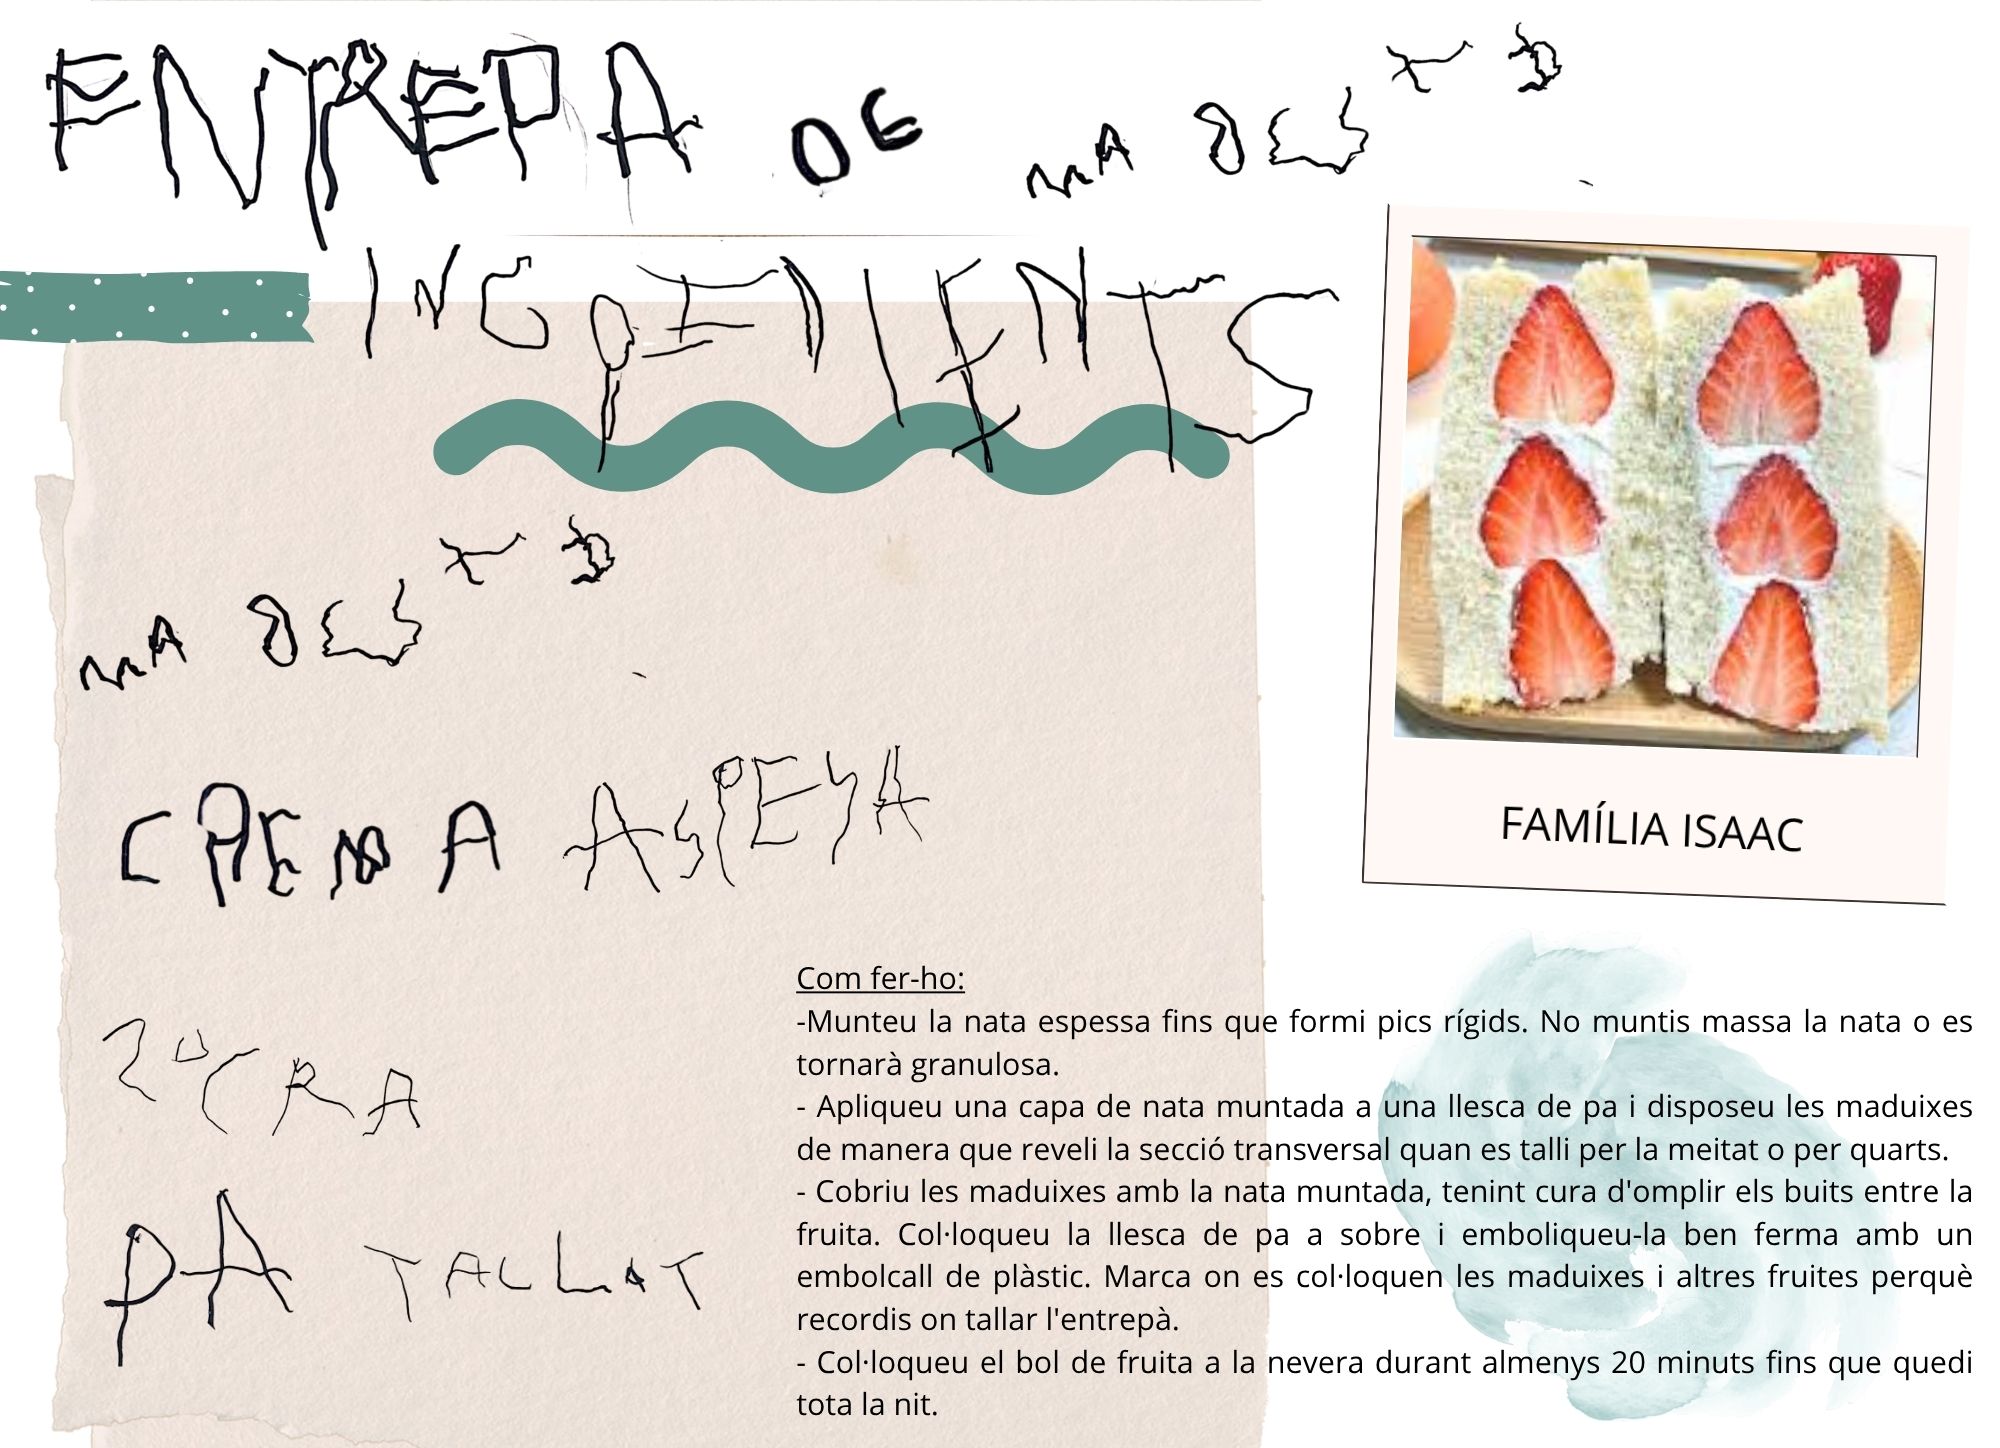 ENTREPA DE
INGREDIENTS
CREMA ASPESA
PA TALLAT
FAMÍLIA ISAAC
Com fer-ho:
-Munteu la nata espessa fins que formi pics rígids. No muntis massa la nata o es
tornarà granulosa.
- Apliqueu una capa de nata muntada a una llesca de pa i disposeu les maduixes
de manera que reveli la secció transversal quan es talli per la meitat o per quarts.
- Cobriu les maduixes amb la nata muntada, tenint cura d'omplir els buits entre la
fruita. Col·loqueu la llesca de pa a sobre i emboliqueu-la ben ferma amb un
embolcall de plàstic. Marca on es col·loquen les maduixes i altres fruites perquè
recordis on tallar l'entrepà.
- Col·loqueu el bol de fruita a la nevera durant almenys 20 minuts fins que quedi
tota la nit.